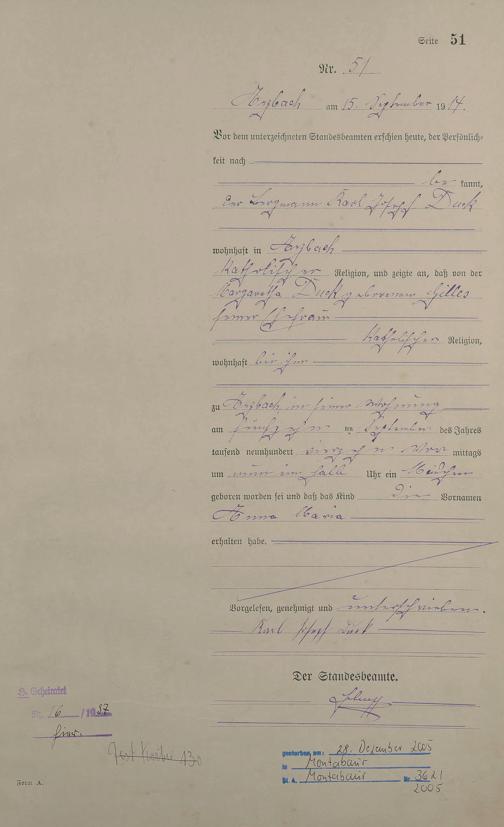 Seite 51
Nr. 51
Arzbach am 15. September 1914.
Vor dem unterzeichneten Standesbeamten erschien heute, der Persönlich-
keit nach
be kannt,
der Bergmann Karl Josef Duck
wohnhaft in Arzbach
Katholischer Religion, und zeigte an, daß von der
Margaretha Duck geborenen Gilles
seiner Ehefrau
Katholischer Religion,
wohnhaft bei ihm
zu Arzbach in seiner Wohnung
am fünfzehn ten September des Jahres
tausend neunhundert vierzehn Vor mittags
um neun ein halb Uhr ein Mädchen
geboren worden sei und daß das Kind die Vornamen
Anna Maria
erhalten habe.
Vorgelesen, genehmigt und unterschrieben.
Karl Josef Duck
Der Standesbeamte.
H. Geheiratet
Nr. 16 / 1937
hier.
gestorben am: 28. Dezember 2005
in Montabaur
St. A. Montabaur Nr. 362/
2005
Form A.